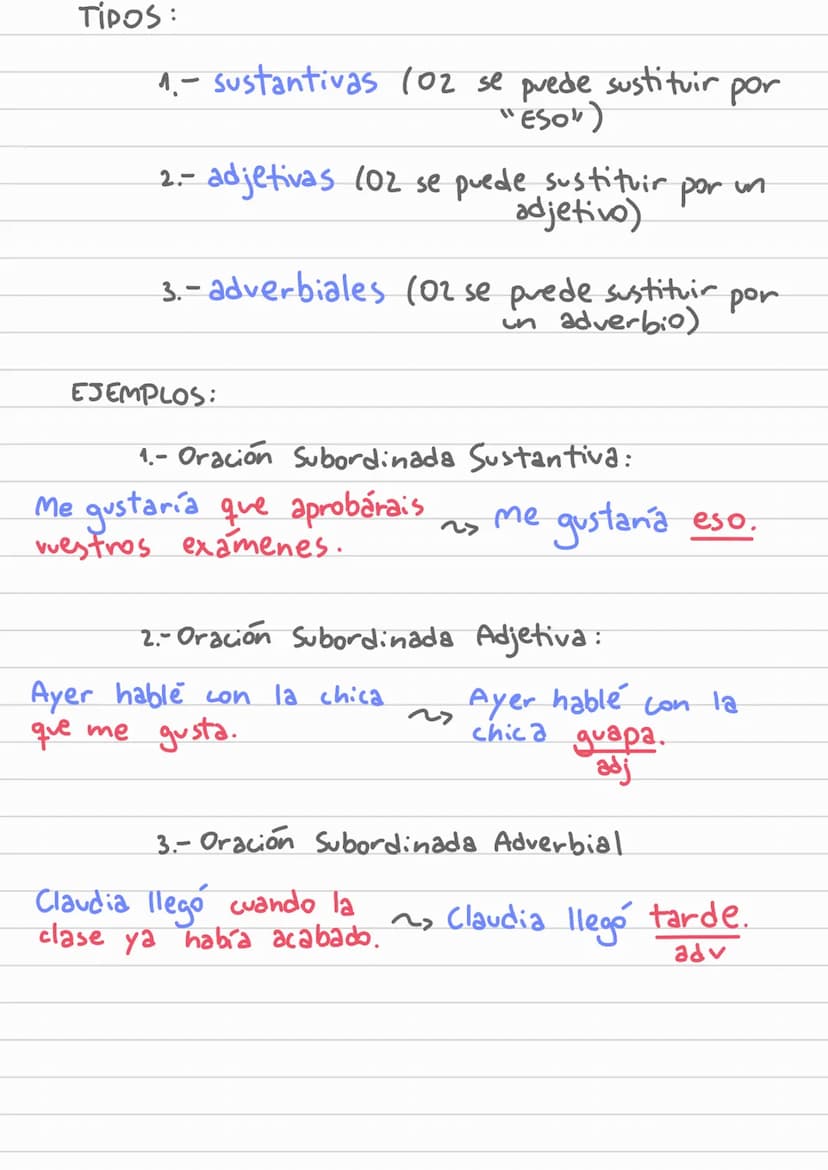 TIPOS:
1.- sustantivas (O2 se puede sustituir por
"ESO")
2.- adjetivas (O2 se puede sustituir por un
adjetivo)
3.- adverbiales (O2 se puede sustituir por
un adverbio)
EJEMPLOS:
1.- Oración Subordinada Sustantiva:
Me gustaría que aprobárais
vuestros exámenes. ~> Me gustaría eso.
2.- Oración Subordinada Adjetiva:
Ayer hablé con la chica
que me gusta. ~>
Ayer hablé con la
chica guapa.
adj
3.- Oración Subordinada Adverbial
Claudia llegó cuando la
clase ya había acabado. ~> Claudia llegó tarde.
adv